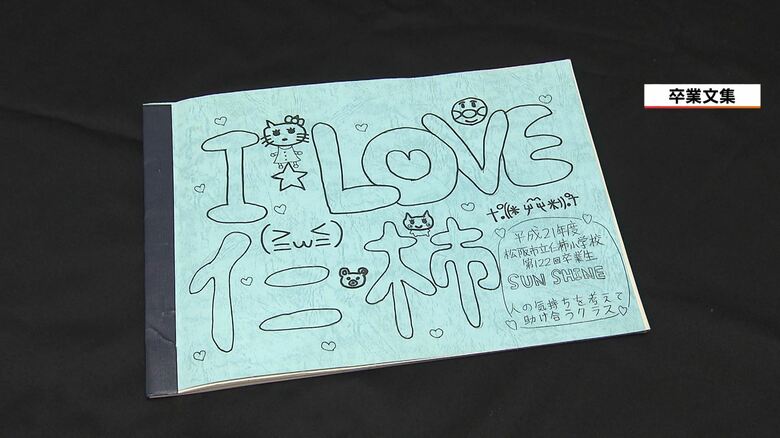 卒業文集
I LOVE
仁柿
(≧ω≦)
平成21年度
松阪市立仁柿小学校
第122回卒業生
SUN SHINE
人の気持ちを考えて
助け合うクラス